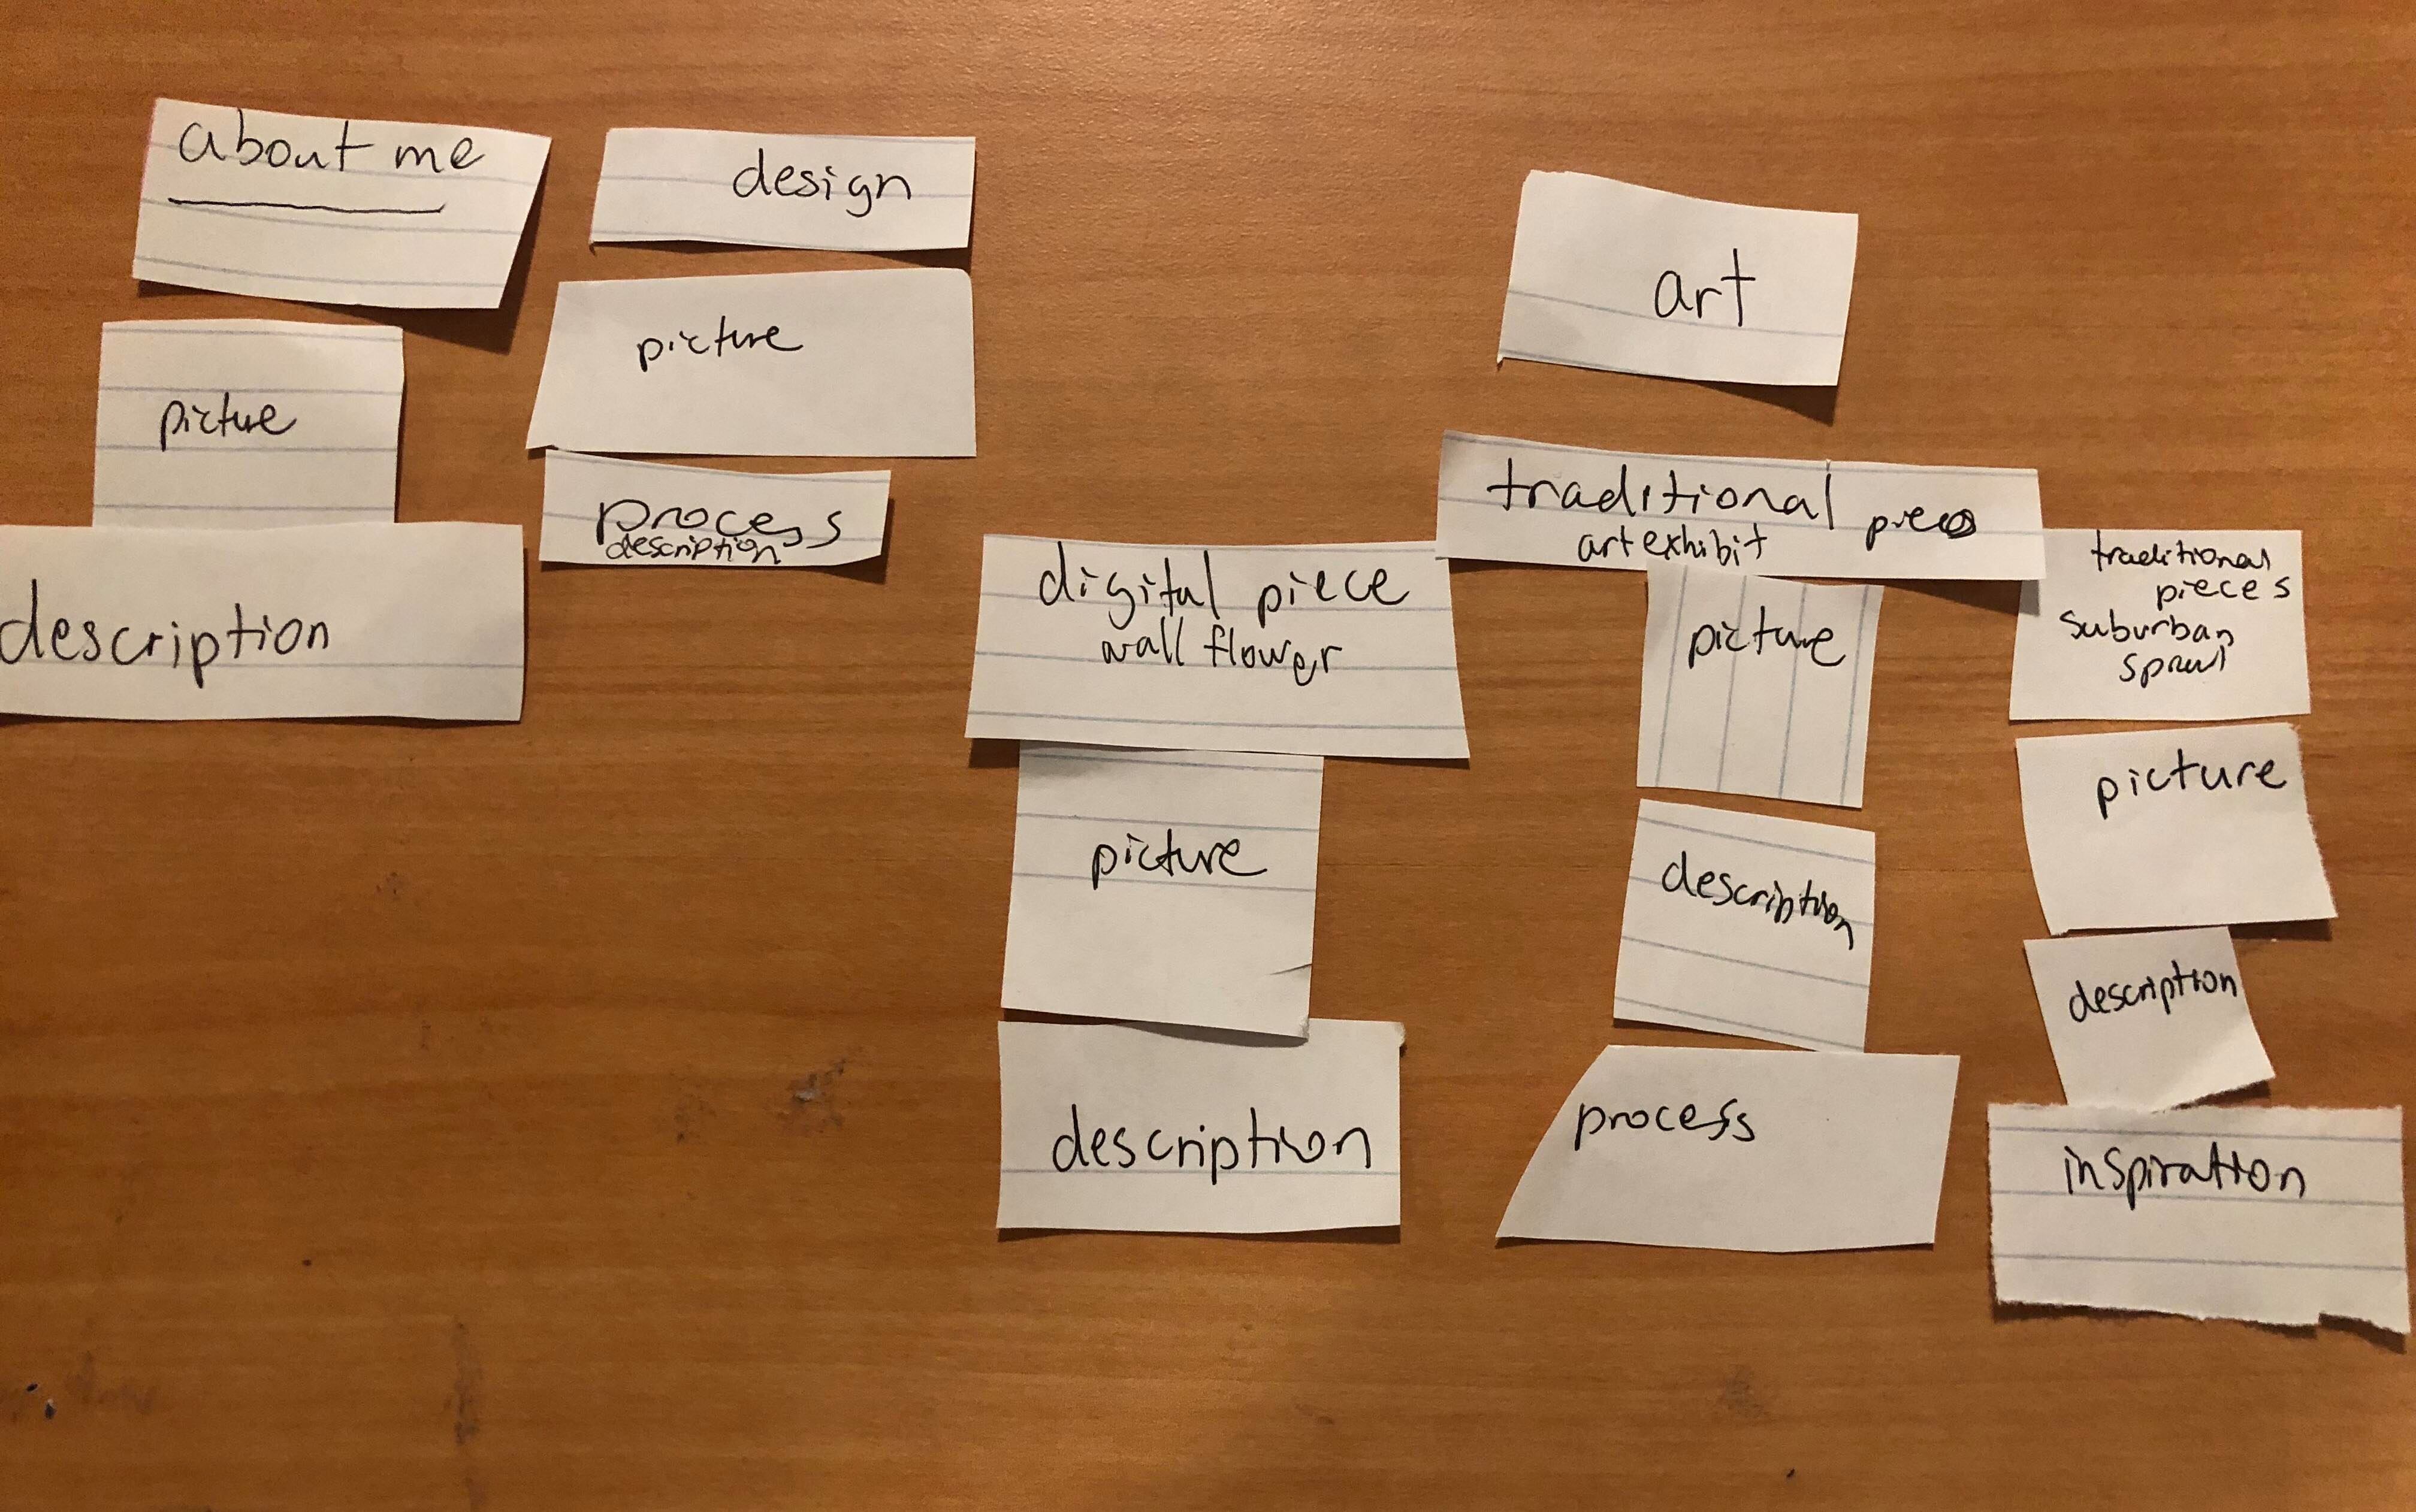 about me
picture
description
design
picture
process
description
art
digital piece
wall flower
picture
description
traditional
art exhibit
picture
description
process
traditional
pieces
suburban
sprawl
picture
description
inspiration